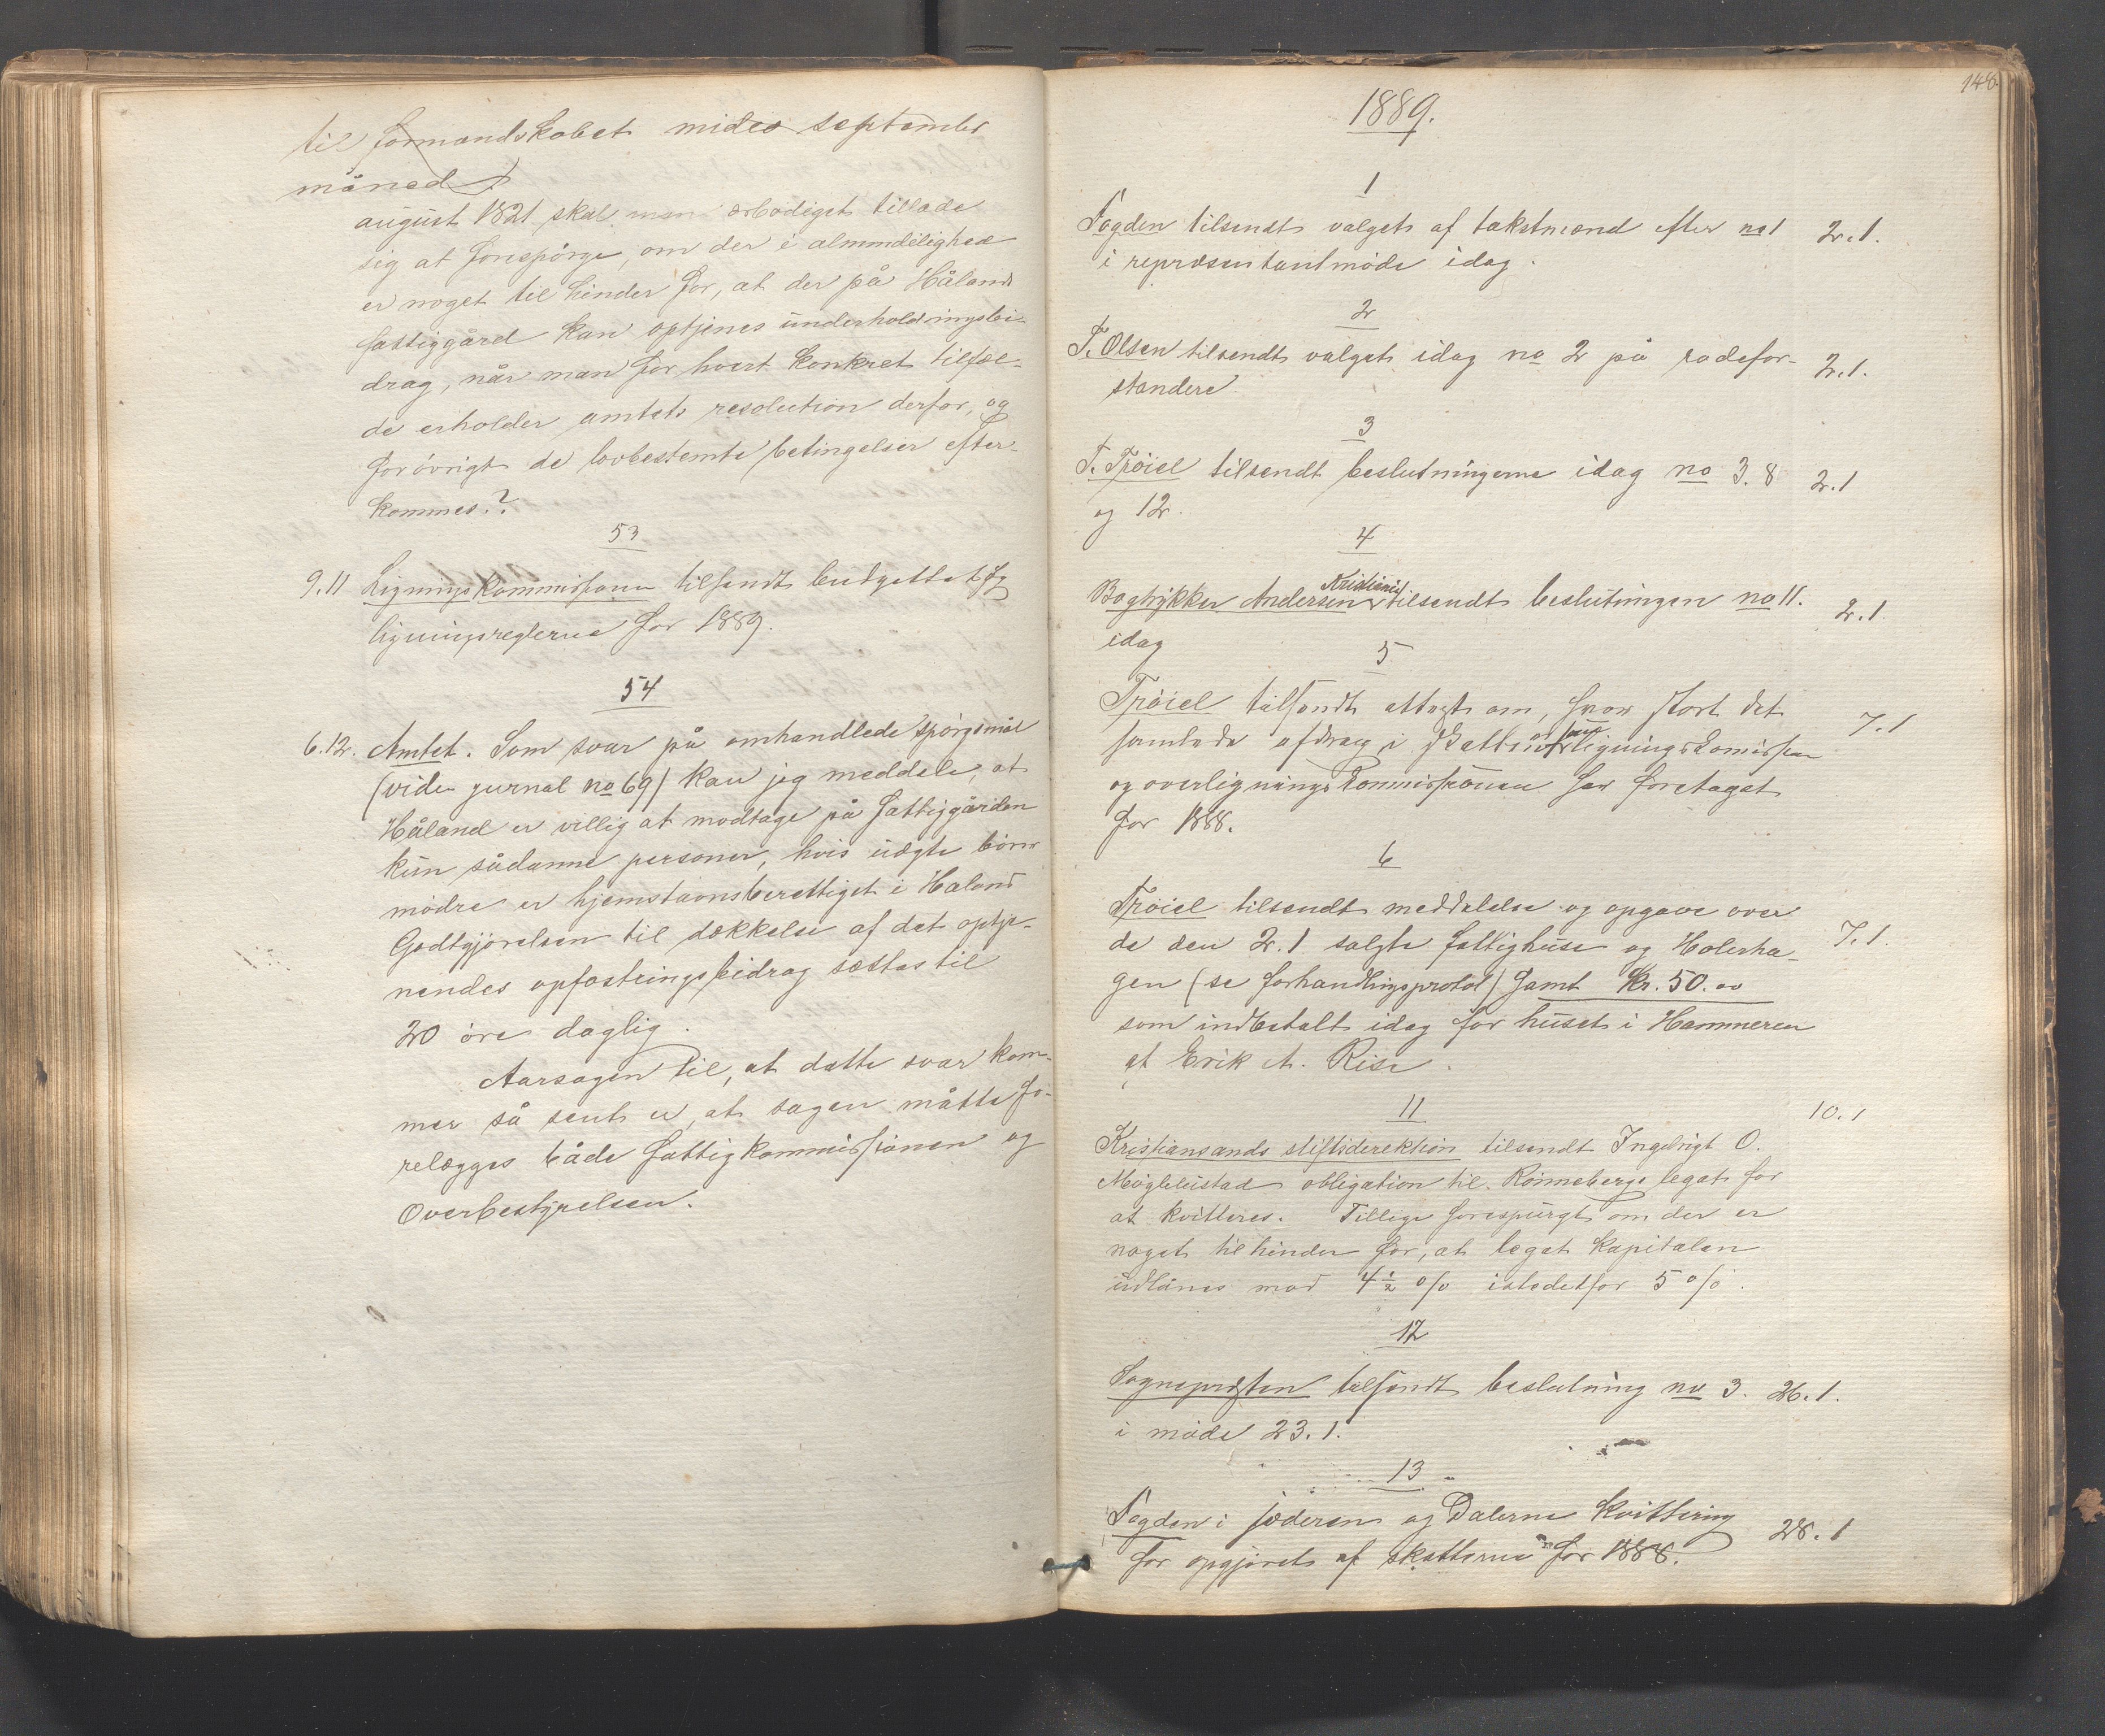 til formandskabet midio september
måned
august 1821 skal man ærbødigst tillade
sig at forespörge, om der i almindelighed
er noget til hinder for, at der på Hålands
fattiggård kan optjenes underholdningsbi-
drag, når man for hvert konkret tilfæl-
de erholder amtets resolution derfor, og
forövrigt de lovbestemte betingelser efter-
kommes?
53
9.11 Ligningskommissionen tilsendt budgettet og
ligningsreglerne for 1889.
54
6.12. Amtet. Som svar på omhandlede spörgsmål
(vide jurnal no 69) kan jeg meddele, at
Håland er villig at modtage på fattiggården
kun sådanne personer, hvis uægte börns
mödre er hjemstavnsberettiget i Haland
Godtgjörelsen til dækkelse af det optje-
nendes opfostringsbidrag sættes til
20 öre daglig.
Aarsagen til, at dette svar kom-
mer så sent er, at sagen måtte fo-
relægges både fattigkommissionen og
Overbestyrelsen.
146
1889.
1
Fogden tilsendt valget af takstmænd efter no 1 2.1.
i repræsentantmöde idag.
2
T. Olsen tilsendt valget idag no 2 på rodefor- 2.1.
standere
3
T. Tröiel tilsendt beslutningerne idag no 3. 8 2.1
og 12.
4
Bogtrykker Andersen Kristiania tilsendt beslutningen no 11. 2.1
idag
5
Tröiel tilsendt attest om, hvor stort det 7.1
samlede afdrag i skatten som ligningskomissionen
og overligningskommissionen har foretaget
for 1888.
6
Tröiel tilsendt meddelelse og opgave over
de den 2.1 solgte fattighuse og Holerha- 7.1.
gen (se forhandlingsprotol) samt Kr. 50.00
som indbetalt idag for huset i Hammeren
af Erik A. Rise.
11 10.1
Kristiansands stiftsdirektion tilsendt Ingebrigt O.
Möglebustad obligation til Rönnebergs legat for
at kvitteres. Tillige forespurgt om der er
noget til hinder for, at legat kapitalen
udlånes mod 4½ % istedetfor 5 %.
12
Sognepræsten tilsendt beslutning no 3. 26.1.
i möde 23.1.
13
Fogden i jæderen og Dalerne kvittering 28.1
for opgjöret af skatterne for 1888.